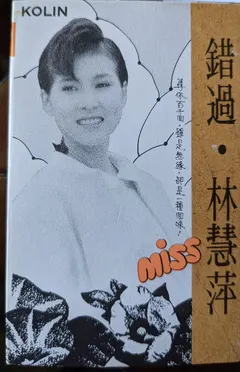 KOLIN
錯過・林慧萍
尋你百千回，雖是無緣，卻是一種回味！
miss